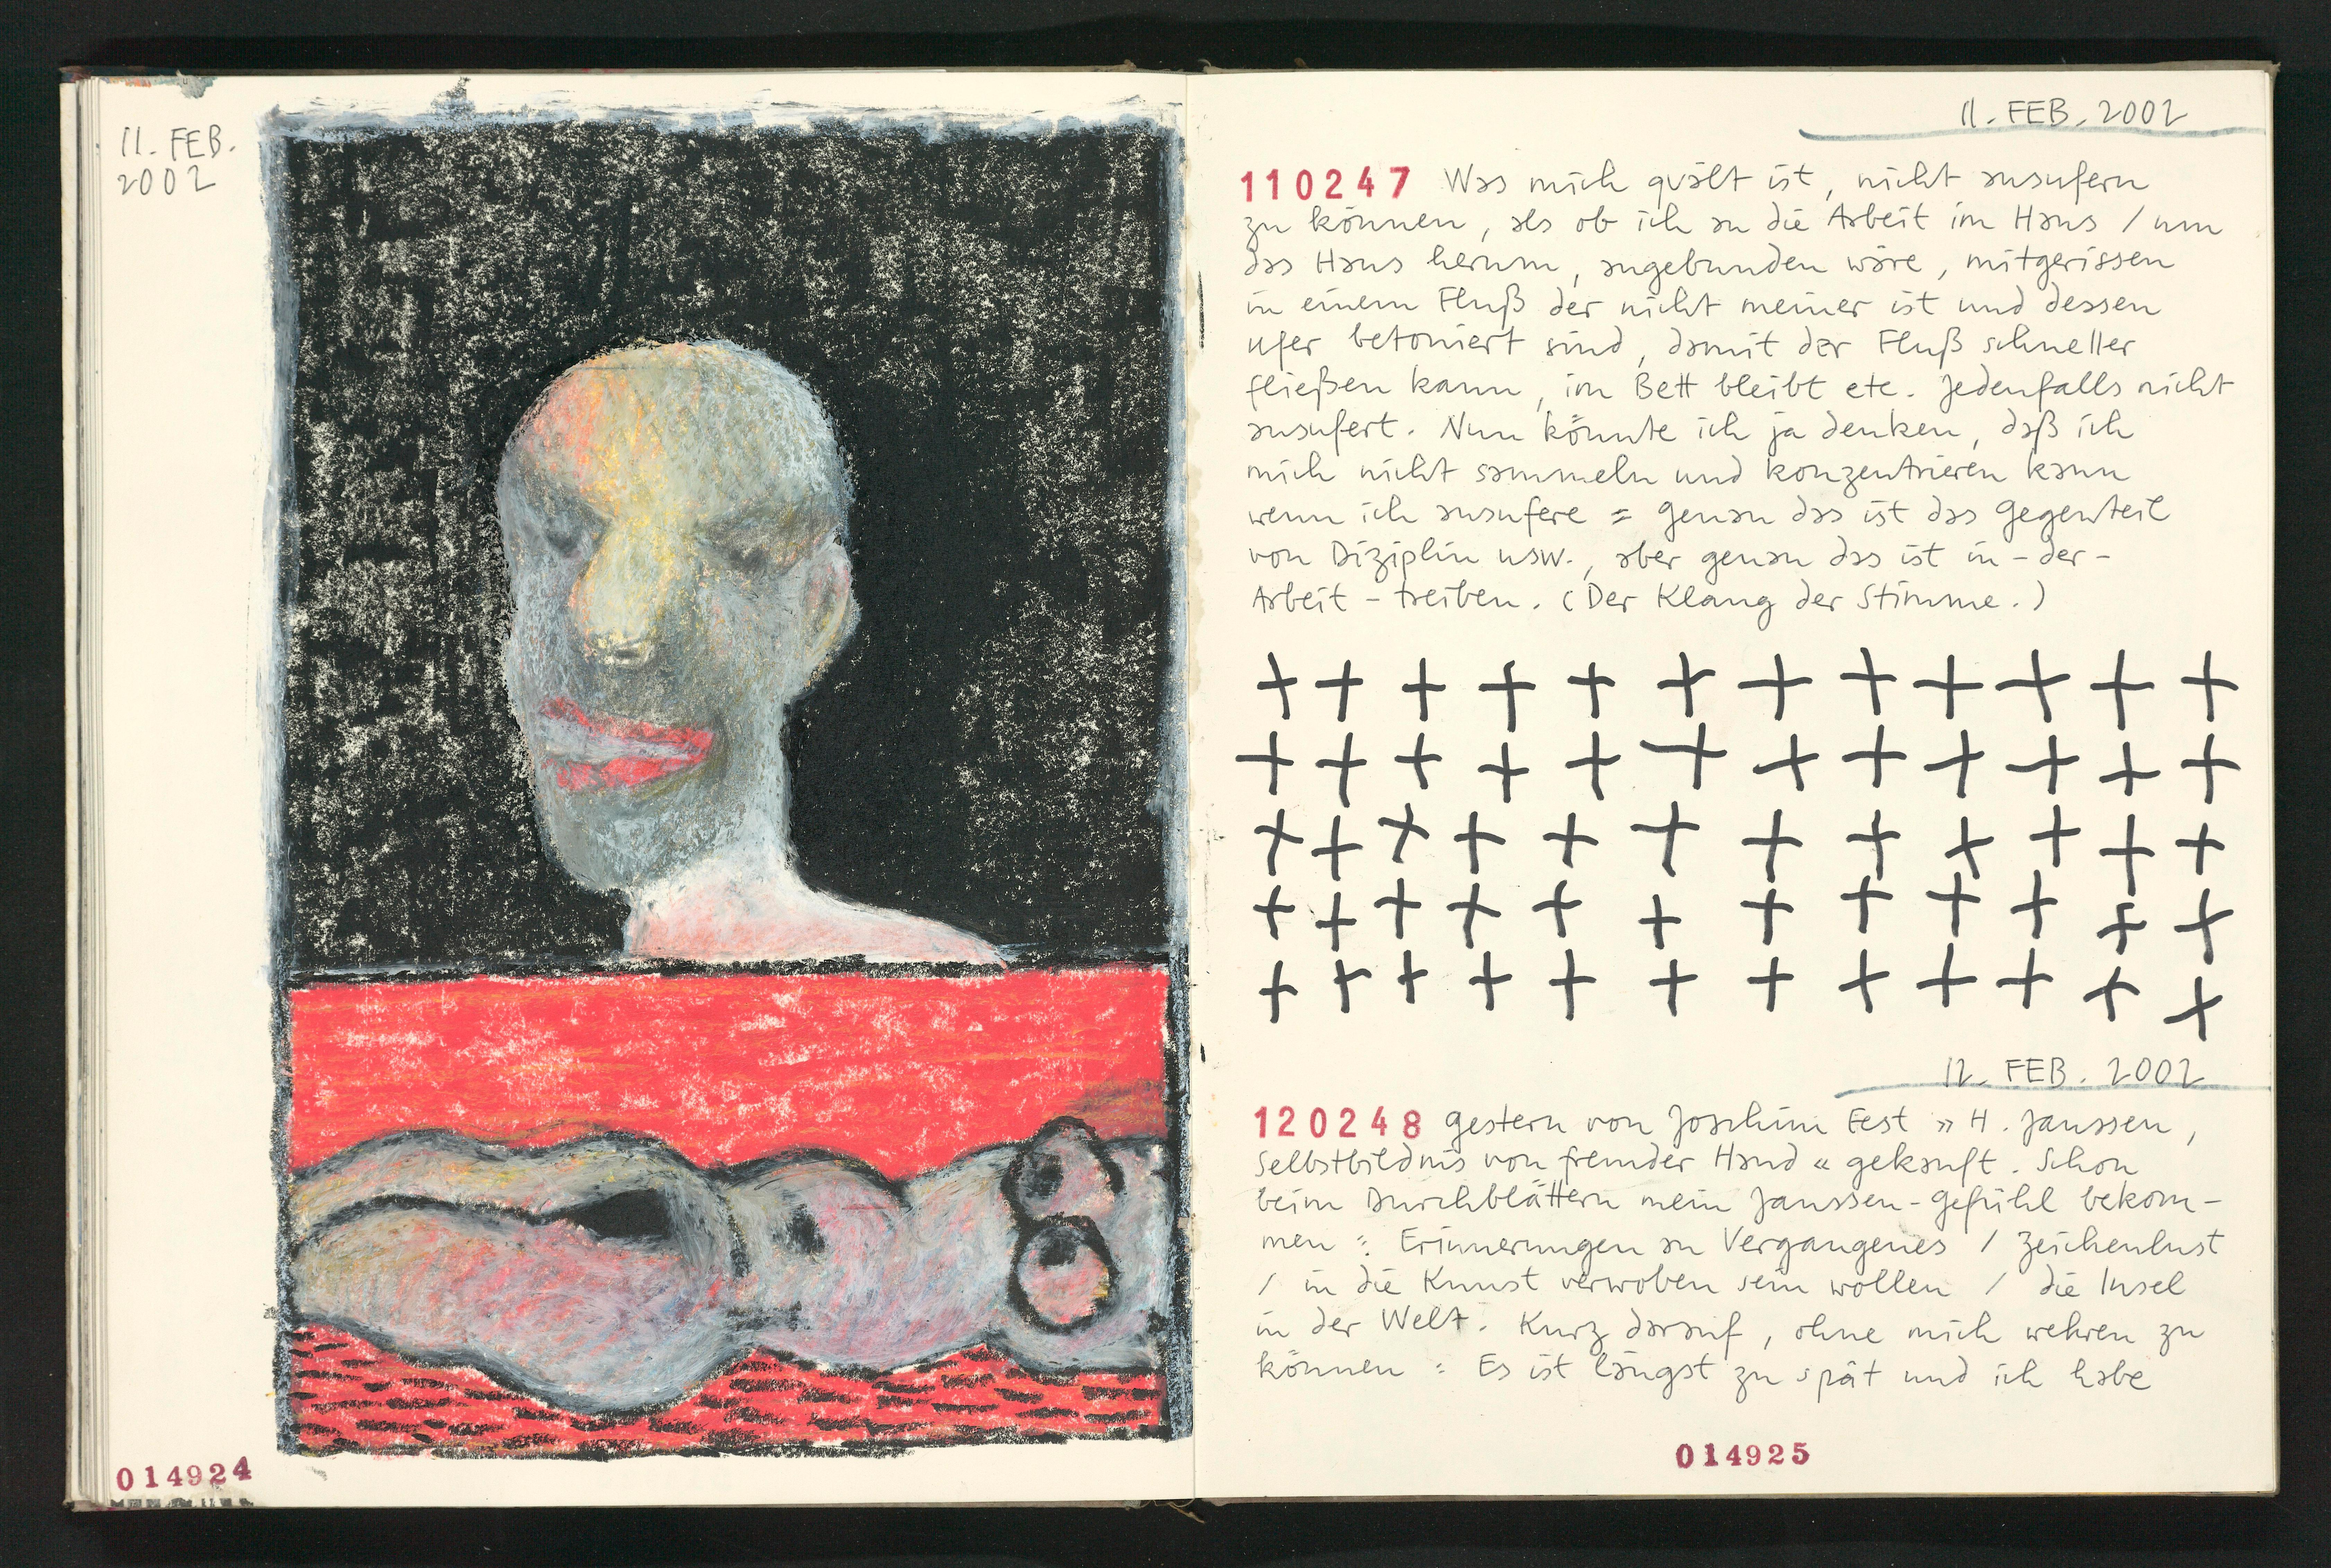 11. FEB.
2002
014924
11. FEB. 2002
110247 Was mich quält ist, nicht ausufern
zu können, als ob ich an die Arbeit im Haus / um
das Haus herum, angebunden wäre, mitgerissen
in einem Fluß der nicht meiner ist und dessen
Ufer betoniert sind, damit der Fluß schneller
fließen kann, im Bett bleibt etc. Jedenfalls nicht
ausufert. Nun könnte ich ja denken, daß ich
mich nicht sammeln und konzentrieren kann
wenn ich ausufere = genau das ist das Gegenteil
von Diziplin usw., aber genau das ist in-der-
Arbeit-treiben. (Der Klang der Stimme.)
+ + + + + + + + + + + +
+ + + + + + + + + + + +
+ + + + + + + + + + + +
+ + + + + + + + + + + +
+ + + + + + + + + + + +
12. FEB. 2002
120248 Gestern von Joachim Fest »H. Janssen,
Selbstbildnis von fremder Hand« gekauft. Schon
beim Durchblättern mein Janssen-Gefühl bekom-
men: Erinnerungen an Vergangenes / Zeichenlust
/ in die Kunst verwoben sein wollen / die Insel
in der Welt. Kurz darauf, ohne mich wehren zu
können: Es ist längst zu spät und ich habe
014925